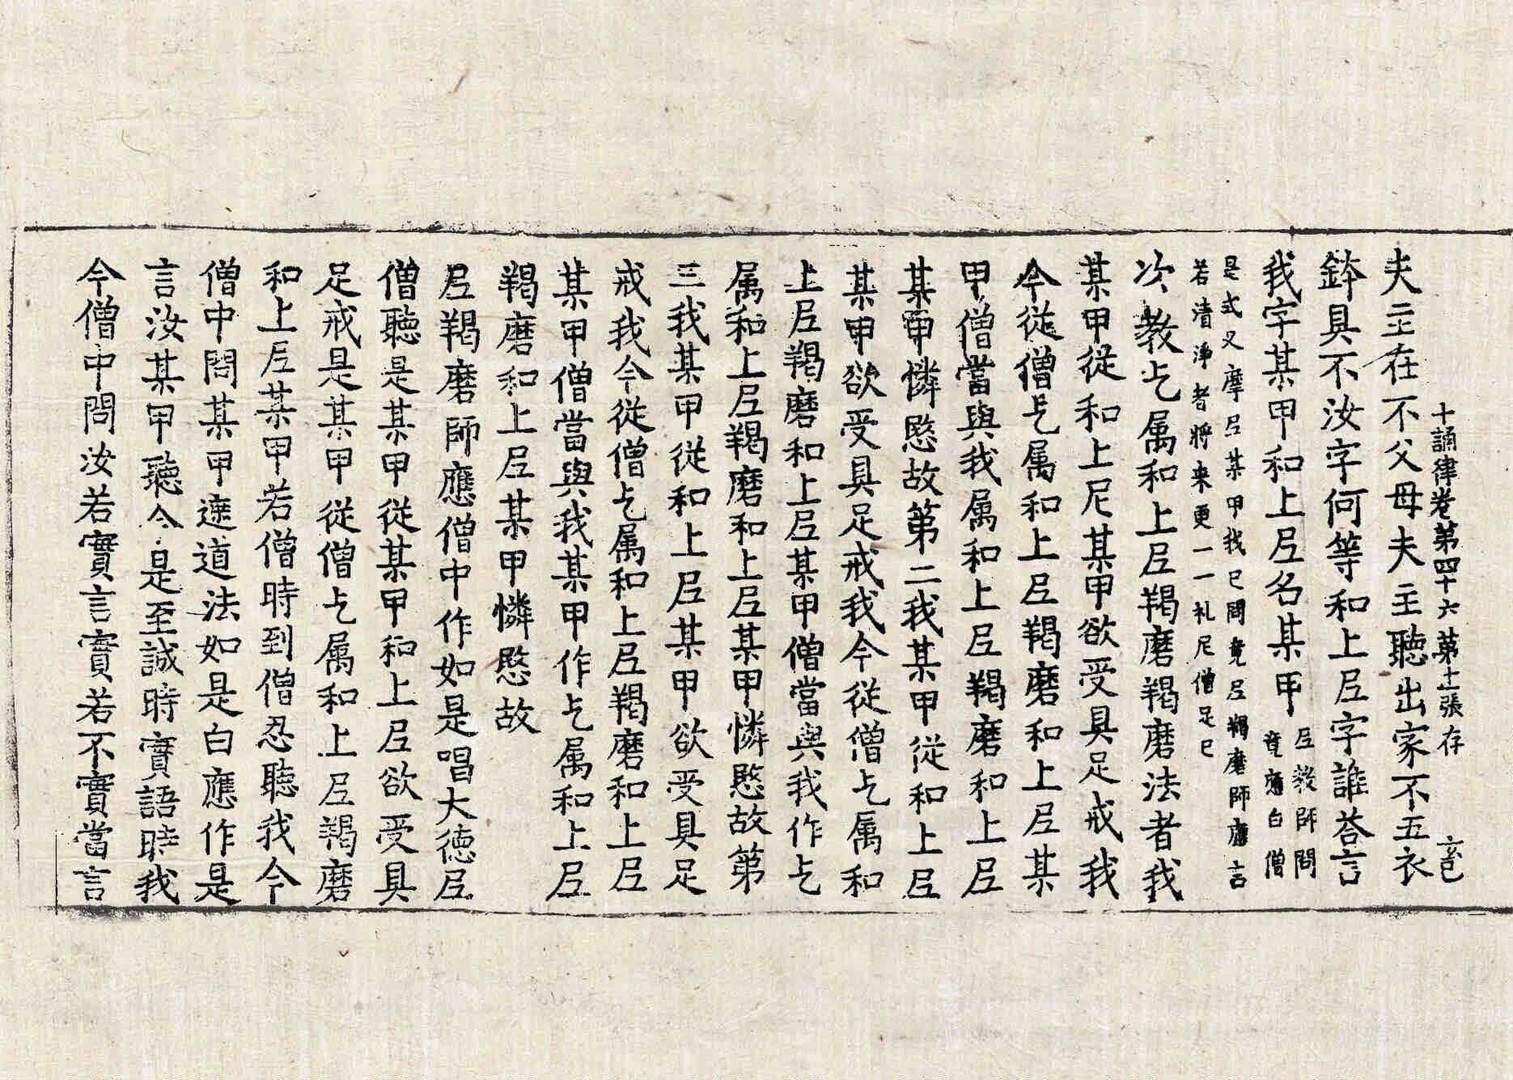 十誦律卷第四十六 第十一張 存
夫主在不父母夫主聽出家不五衣
鉢具不汝字何等和上尼字誰荅言
我字某甲和上尼名某甲
尼教師問
竟應白僧
是式叉摩尼某甲我已問竟尼羯磨師應言
若清淨者將来更一一礼尼僧足已
次教乞属和上尼羯磨羯磨法者我
某甲從和上尼某甲欲受具足戒我
今從僧乞属和上尼羯磨和上尼某
甲僧當與我属和上尼羯磨和上尼
某甲憐愍故第二我某甲從和上尼
某甲欲受具足戒我今從僧乞属和
上尼羯磨和上尼某甲僧當與我作乞
属和上尼羯磨和上尼某甲憐愍故第
三我某甲從和上尼某甲欲受具足
戒我今從僧乞属和上尼羯磨和上尼
某甲僧當與我某甲作乞属和上尼
羯磨和上尼某甲憐愍故
尼羯磨師應僧中作如是唱大德尼
僧聽是某甲從某甲和上尼欲受具
足戒是某甲從僧乞属和上尼羯磨
和上尼某甲若僧時到僧忍聽我今
僧中問某甲遮道法如是白應作是
言汝某甲聽今是至誠時實語時我
今僧中問汝若實言實若不實當言